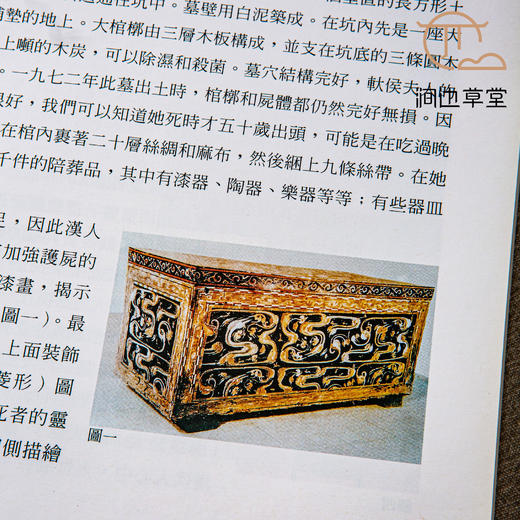 通往坑中。墓壁用白泥築成。在坑內先是一座大
鋪墊的地上。大棺槨由三層木板構成，並支在坑底的三條圓木
上噸的木炭，可以除濕和殺菌。墓穴結構完好，軑侯夫人的
一九七二年此墓出土時，棺槨和屍體都仍然完好無損。因
很好，我們可以知道她死時才五十歲出頭，可能是在吃過晚
在棺內裹著二十層絲綢和麻布，然後綑上九條絲帶。在她
千件的陪葬品，其中有漆器、陶器、樂器等等；有些器皿
足，因此漢人
加強護屍的
漆畫，揭示
圖一）。最
上面裝飾
菱形）圖
死者的靈
側描繪
圖一
洄迆草堂